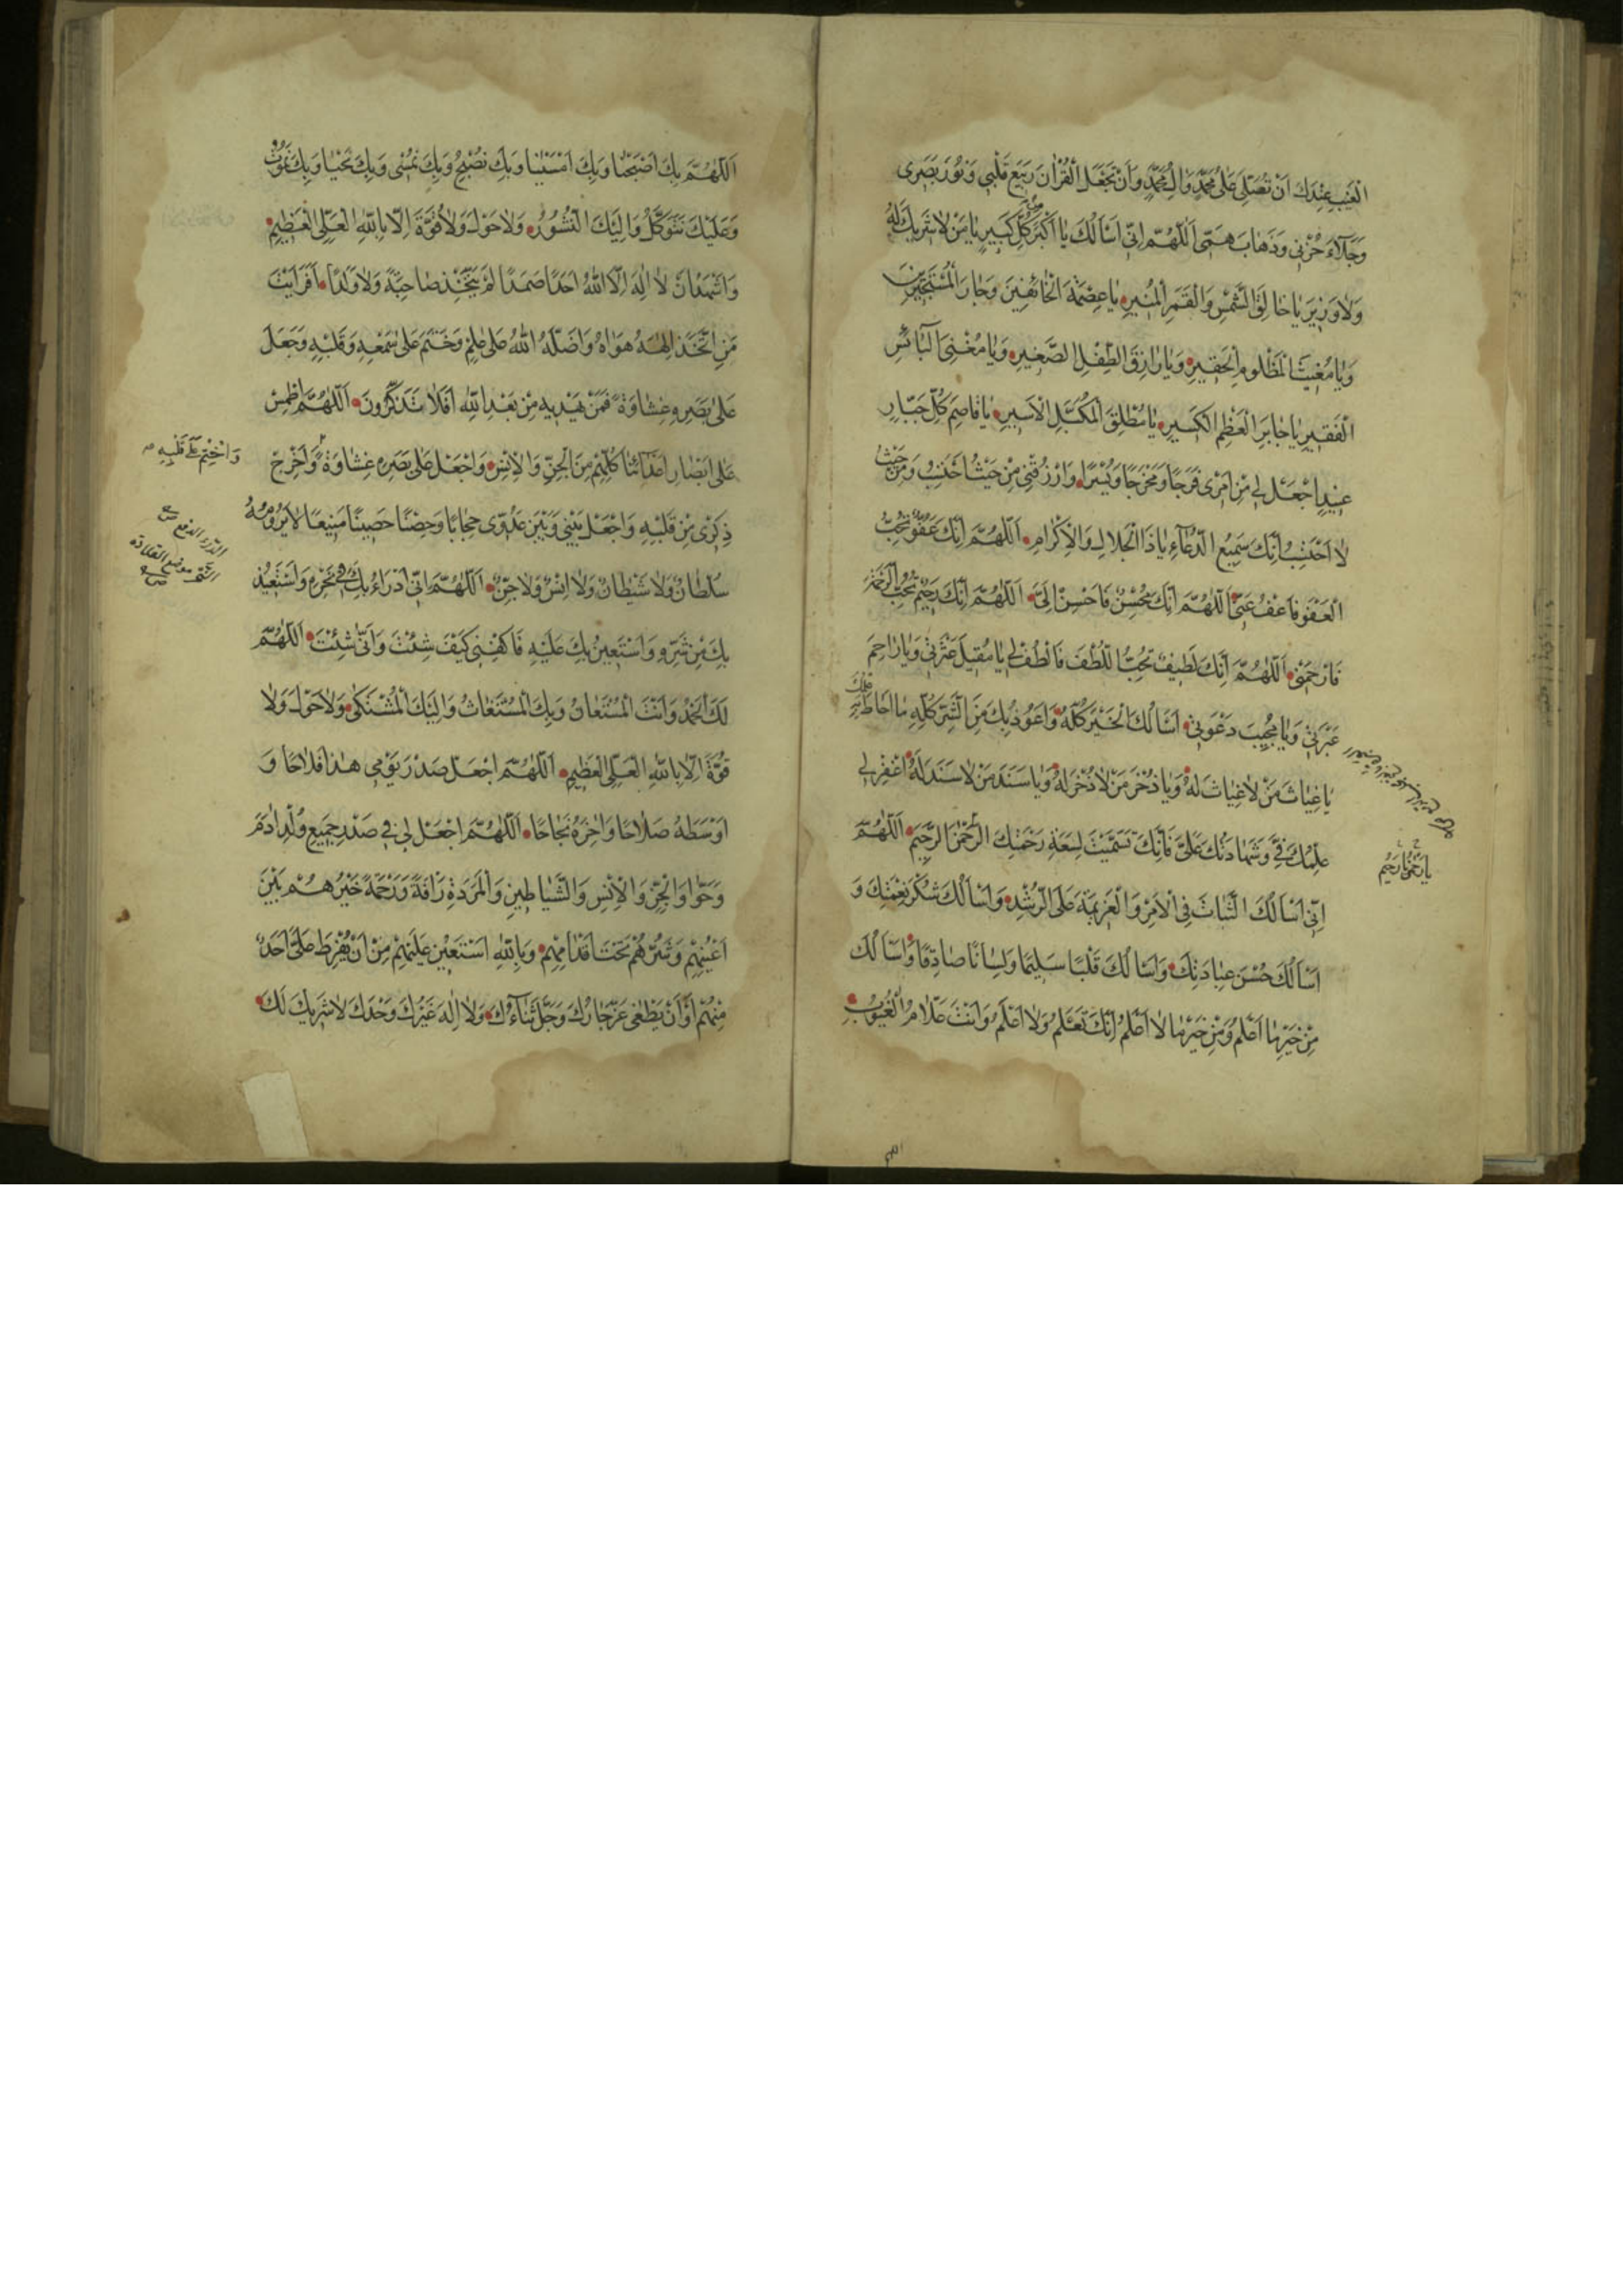 الْغَيْبِ عِنْدَكَ اَنْ تُصَلِّيَ عَلٰى مُحَمَّدٍ وَاٰلِ مُحَمَّدٍ وَاَنْ تَجْعَلَ الْقُرْاٰنَ رَبِيعَ قَلْبِي وَنُورَ بَصَرِى
وَجَلَاءَ حُزْنِي وَذَهَابَ هَمّى اَللّٰهُمَّ اِنِّي اَسْأَلُكَ يَا اَكْبَرَ كُلِّ كَبِيرٍ يَا مَنْ لَا شَرِيكَ لَهُ
وَلَا وَزِيرَ يَا خَالِقَ الشَّمْسِ وَالْقَمَرِ الْمُنِيرِ يَا عِصْمَةَ الْخَائِفِينَ وَجَارَ الْمُسْتَجِيرِينَ
وَيَا مُغِيثَ الْمَظْلُومِ الْحَقِيرِ وَيَا رَازِقَ الطِّفْلِ الصَّغِيرِ وَيَا مُغْنِيَ الْبَائِسِ
الْفَقِيرِ يَا جَابِرَ الْعَظْمِ الْكَسِيرِ يَا مُطْلِقَ الْمُكَبَّلِ الْاَسِيرِ يَا قَاصِمَ كُلِّ جَبَّارٍ
عَنِيدٍ اجْعَلْ لِي مِنْ اَمْرِى فَرَجًا وَمَخْرَجًا وَيُسْرًا وَارْزُقْنِي مِنْ حَيْثُ اَحْتَسِبُ وَمِنْ حَيْثُ
لَا اَحْتَسِبُ اِنَّكَ سَمِيعُ الدُّعَاءِ يَا ذَا الْجَلَالِ وَالْاِكْرَامِ اَللّٰهُمَّ اِنَّكَ عَفُوٌّ تُحِبُّ
الْعَفْوَ فَاعْفُ عَنِّي اَللّٰهُمَّ اِنَّكَ مُحْسِنٌ فَاَحْسِنْ اِلَيَّ اَللّٰهُمَّ اِنَّكَ رَحِيمٌ تُحِبُّ الرَّحْمَةَ
فَارْحَمْنِي اَللّٰهُمَّ اِنَّكَ لَطِيفٌ تُحِبُّ اللُّطْفَ فَالْطُفْ لِي يَا مُقِيلَ عَثْرَتِي وَيَا رَاحِمَ
عَبْرَتِي وَيَا مُجِيبَ دَعْوَتِي اَسْأَلُكَ الْخَيْرَ كُلَّهُ وَاَعُوذُ بِكَ مِنَ الشَّرِّ كُلِّهِ مَا اَحَاطَ بِهِ عِلْمُكَ
يَا غِيَاثَ مَنْ لَا غِيَاثَ لَهُ وَيَا ذُخْرَ مَنْ لَا ذُخْرَ لَهُ وَيَا سَنَدَ مَنْ لَا سَنَدَ لَهُ اغْفِرْ لِي
عِلْمَكَ فِيَّ وَشَهَادَتَكَ عَلَيَّ فَاِنَّكَ تَسَمَّيْتَ لِسَعَةِ رَحْمَتِكَ الرَّحْمٰنَ الرَّحِيمَ اَللّٰهُمَّ
يَا رَحْمٰنُ يَا رَحِيمُ
اِنِّي اَسْأَلُكَ الثَّبَاتَ فِي الْاَمْرِ وَالْعَزِيمَةَ عَلَى الرُّشْدِ وَاَسْأَلُكَ شُكْرَ نِعْمَتِكَ وَ
اَسْأَلُكَ حُسْنَ عِبَادَتِكَ وَاَسْأَلُكَ قَلْبًا سَلِيمًا وَلِسَانًا صَادِقًا وَاَسْأَلُكَ
مِنْ خَيْرِ مَا اَعْلَمُ وَمِنْ خَيْرِ مَا لَا اَعْلَمُ اِنَّكَ تَعْلَمُ وَلَا اَعْلَمُ وَاَنْتَ عَلَّامُ الْغُيُوبِ
اللهم
اَللّٰهُمَّ بِكَ اَصْبَحْنَا وَبِكَ اَمْسَيْنَا وَبِكَ نُصْبِحُ وَبِكَ نُمْسِى وَبِكَ نَحْيَا وَبِكَ نَمُوتُ
وَعَلَيْكَ نَتَوَكَّلُ وَاِلَيْكَ النُّشُورُ وَلَا حَوْلَ وَلَا قُوَّةَ اِلَّا بِاللّٰهِ الْعَلِيِّ الْعَظِيمِ
وَاَشْهَدُ اَنْ لَا اِلٰهَ اِلَّا اللّٰهُ اَحَدًا صَمَدًا لَمْ يَتَّخِذْ صَاحِبَةً وَلَا وَلَدًا اَفَرَاَيْتَ
مَنِ اتَّخَذَ اِلٰهَهُ هَوَاهُ وَاَضَلَّهُ اللّٰهُ عَلٰى عِلْمٍ وَخَتَمَ عَلٰى سَمْعِهِ وَقَلْبِهِ وَجَعَلَ
عَلٰى بَصَرِهِ غِشَاوَةً فَمَنْ يَهْدِيهِ مِنْ بَعْدِ اللّٰهِ اَفَلَا تَذَكَّرُونَ اَللّٰهُمَّ اطْمِسْ
عَلٰى اَبْصَارِ اَعْدَائِنَا كُلِّهِمْ مِنَ الْجِنِّ وَالْاِنْسِ وَاجْعَلْ عَلٰى بَصَرِهِ غِشَاوَةً وَاَخْرِجْ
وَاخْتِمْ عَلٰى قَلْبِهِ
ذِكْرِى مِنْ قَلْبِهِ وَاجْعَلْ بَيْنِي وَبَيْنَ عَدُوِّى حِجَابًا وَحِصْنًا حَصِينًا مَنِيعًا لَا يَرُومُهُ
الدرء الدفع
سُلْطَانٌ وَلَا شَيْطَانٌ وَلَا اِنْسٌ وَلَا جِنٌّ اَللّٰهُمَّ اِنِّي اَدْرَاُ بِكَ فِي نَحْرِهِ وَاَسْتَعِيذُ
النحر موضع القلادة
بِكَ مِنْ شَرِّهِ وَاَسْتَعِينُ بِكَ عَلَيْهِ فَاكْفِنِي كَيْفَ شِئْتَ وَاَنّٰى شِئْتَ اَللّٰهُمَّ
لَكَ الْحَمْدُ وَاَنْتَ الْمُسْتَعَانُ وَبِكَ الْمُسْتَغَاثُ وَاِلَيْكَ الْمُشْتَكٰى وَلَا حَوْلَ وَلَا
قُوَّةَ اِلَّا بِاللّٰهِ الْعَلِيِّ الْعَظِيمِ اَللّٰهُمَّ اجْعَلْ صَدْرَ يَوْمِي هٰذَا فَلَاحًا وَ
اَوْسَطَهُ صَلَاحًا وَاٰخِرَهُ نَجَاحًا اَللّٰهُمَّ اجْعَلْ لِي فِي صَدْرِ جَمِيعِ وُلْدِ اٰدَمَ
وَحَوَّا وَالْجِنِّ وَالْاِنْسِ وَالشَّيَاطِينِ وَالْمَرَدَةِ رَاْفَةً وَرَحْمَةً خَيْرُهُمْ بَيْنَ
اَعْيُنِهِمْ وَشَرُّهُمْ تَحْتَ اَقْدَامِهِمْ وَبِاللّٰهِ اَسْتَعِينُ عَلَيْهِمْ مِنْ اَنْ يَفْرُطَ عَلَيَّ اَحَدٌ
مِنْهُمْ اَوْ اَنْ يَطْغٰى عَزَّ جَارُكَ وَجَلَّ ثَنَاؤُكَ وَلَا اِلٰهَ غَيْرُكَ وَحْدَكَ لَا شَرِيكَ لَكَ